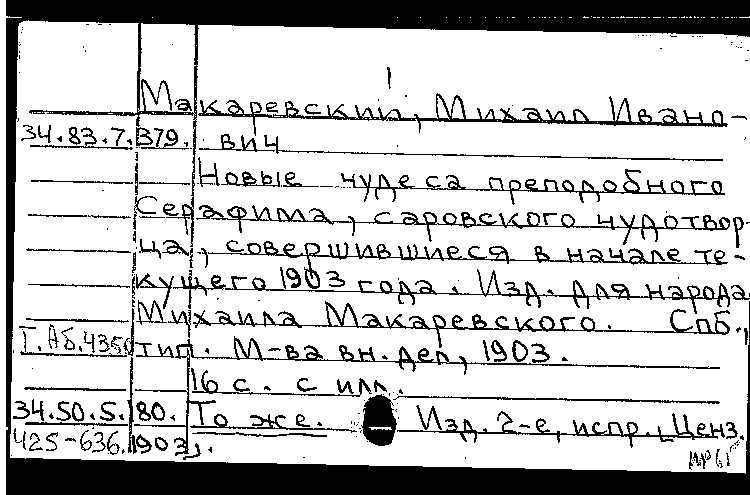 Макаревский, Михаил Ивано-
34.83.7.379. вич
Новые чудеса преподобного
Серафима, саровского чудотвор-
ца, совершившиеся в начале те-
кущего 1903 года. Изд. для народа
Михаила Макаревского. Спб.,
Г.Аб.4350 тип. М-ва вн. дел, 1903.
16 с. с илл.
34.50.5.180. То же. Изд. 2-е, испр. [Ценз.
425-636. 1903].